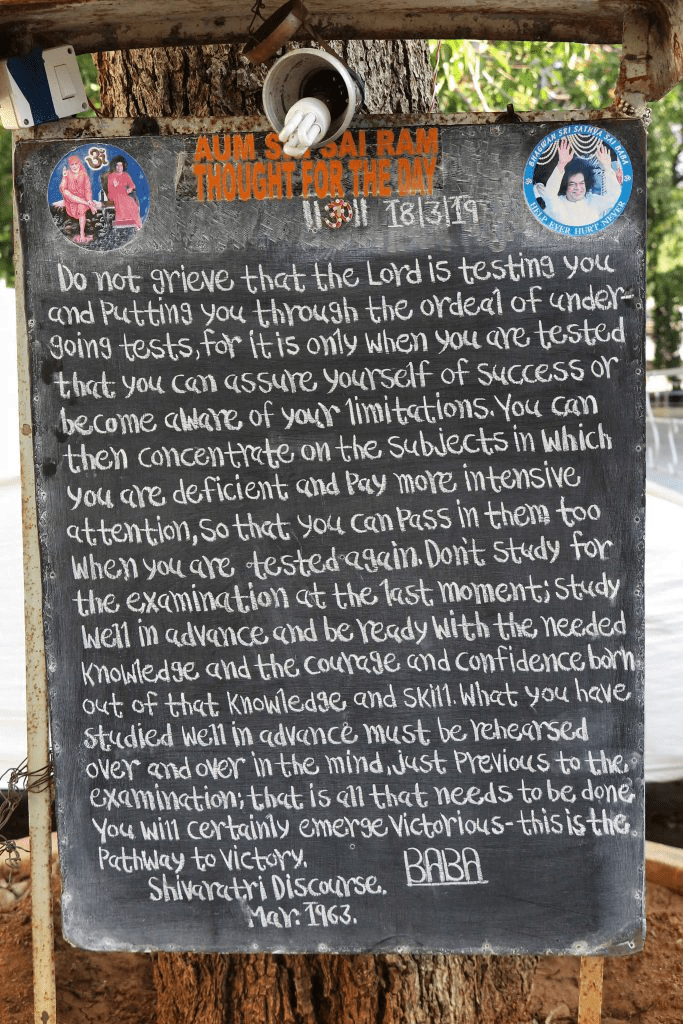 AUM SRI SAI RAM
THOUGHT FOR THE DAY
|| ॐ || 18/3/19
BHAGWAN SRI SATHYA SAI BABA
HELP EVER HURT NEVER
ॐ
Do not grieve that the Lord is testing you
and Putting you through the ordeal of under-
going tests, for it is only when you are tested
that you can assure yourself of success or
become aware of your limitations. You can
then concentrate on the subjects in which
you are deficient and Pay more intensive
attention, so that you can Pass in them too
when you are tested again. Don't study for
the examination at the last moment; study
well in advance and be ready with the needed
knowledge and the courage and confidence born
out of that knowledge and skill. What you have
studied well in advance must be rehearsed
over and over in the mind, just Previous to the
examination; that is all that needs to be done
You will certainly emerge victorious - this is the
Pathway to victory.
BABA
Shivaratri Discourse.
Mar: 1963.